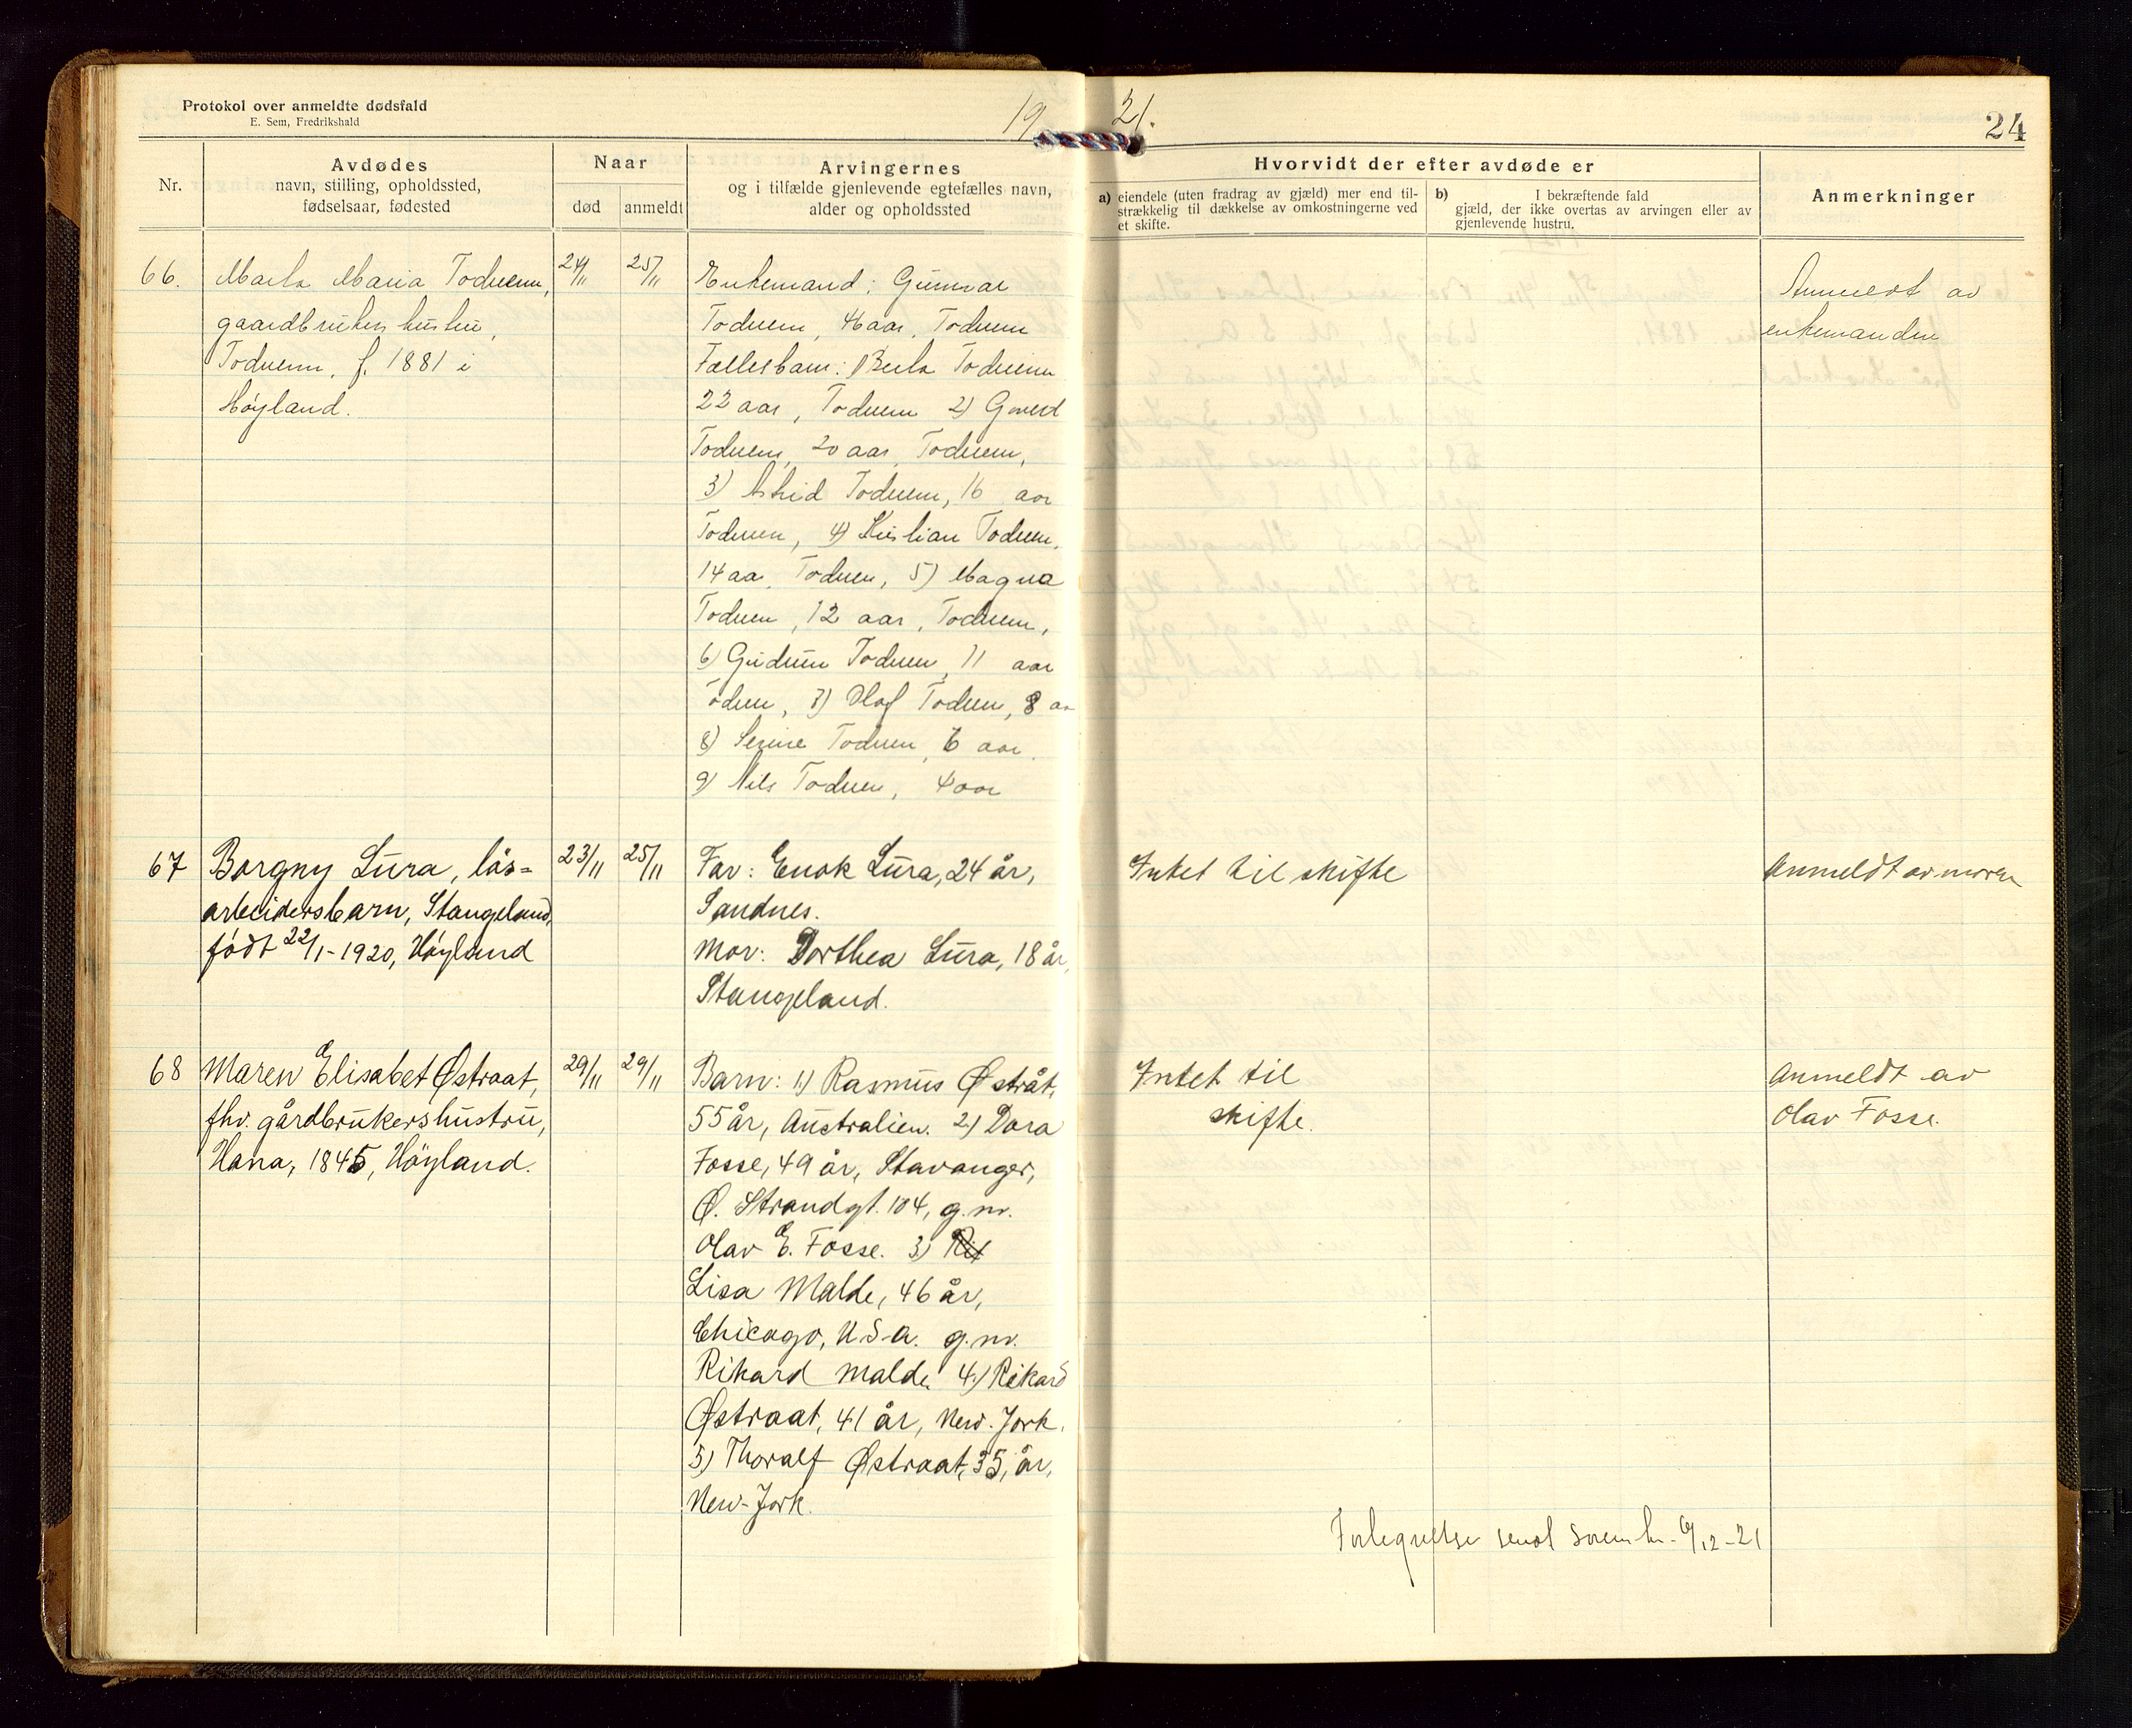 Protokol over anmeldte dødsfald
E. Sem, Fredrikshald
19 21.
24
Nr.
Avdødes
navn, stilling, opholdssted,
fødselsaar, fødested
Naar
død
anmeldt
Arvingernes
og i tilfælde gjenlevende egtefælles navn,
alder og opholdssted
Hvorvidt der efter avdøde er
a) eiendele (uten fradrag av gjæld) mer end til-
strækkelig til dækkelse av omkostningerne ved
et skifte.
b) I bekræftende fald
gjæld, der ikke overtas av arvingen eller av
gjenlevende hustru.
Anmerkninger
66.
Marta Maria Todneim,
gaardbrukers hustru,
Todneim, f. 1881 i
Høyland.
24/11
25/11
Enkemand: Gunnar
Todneim, 46 aar, Todneim
Fællesbarn: 1) Berta Todneim
22 aar, Todneim 2) Goverd
Todneim, 20 aar, Todneim,
3) Astrid Todneim, 16 aar
Todneim, 4) Kristian Todneim,
14 aar, Todneim, 5) Magna
Todneim, 12 aar, Todneim,
6) Gudrun Todneim, 11 aar
Todneim, 7) Olaf Todneim, 8 aar
8) Serine Todneim, 6 aar,
9) Nils Todneim, 4 aar
Anmeldt av
enkemanden
67
Borgny Lura, løs-
arbeidersbarn, Stangeland,
født 22/1-1920, Høyland
23/11
25/11
Far: Enok Lura, 24 år,
Sandnes.
Mor: Dorthea Lura, 18 år,
Stangeland.
Intet til skifte
Anmeldt av moren
68
Maren Elisabet Østraat,
fhv. gårdbrukershustru,
Hana, 1845, Høyland.
29/11
29/11
Barn: 1) Rasmus Østråt,
55 år, Australien. 2) Dora
Fosse, 49 år, Stavanger,
Ø. Strandgt. 104, g.m.
Olav E. Fosse. 3)
Lisa Malde, 46 år,
Chicago, U.S.A. g.m.
Rikard Malde. 4) Rikard
Østraat, 41 år, New-Jork.
5) Thoralf Østraat, 35, år,
New-Jork.
Intet til
skifte.
Anmeldt av
Olav Fosse.
sendt Sorenskr. 6/12-21